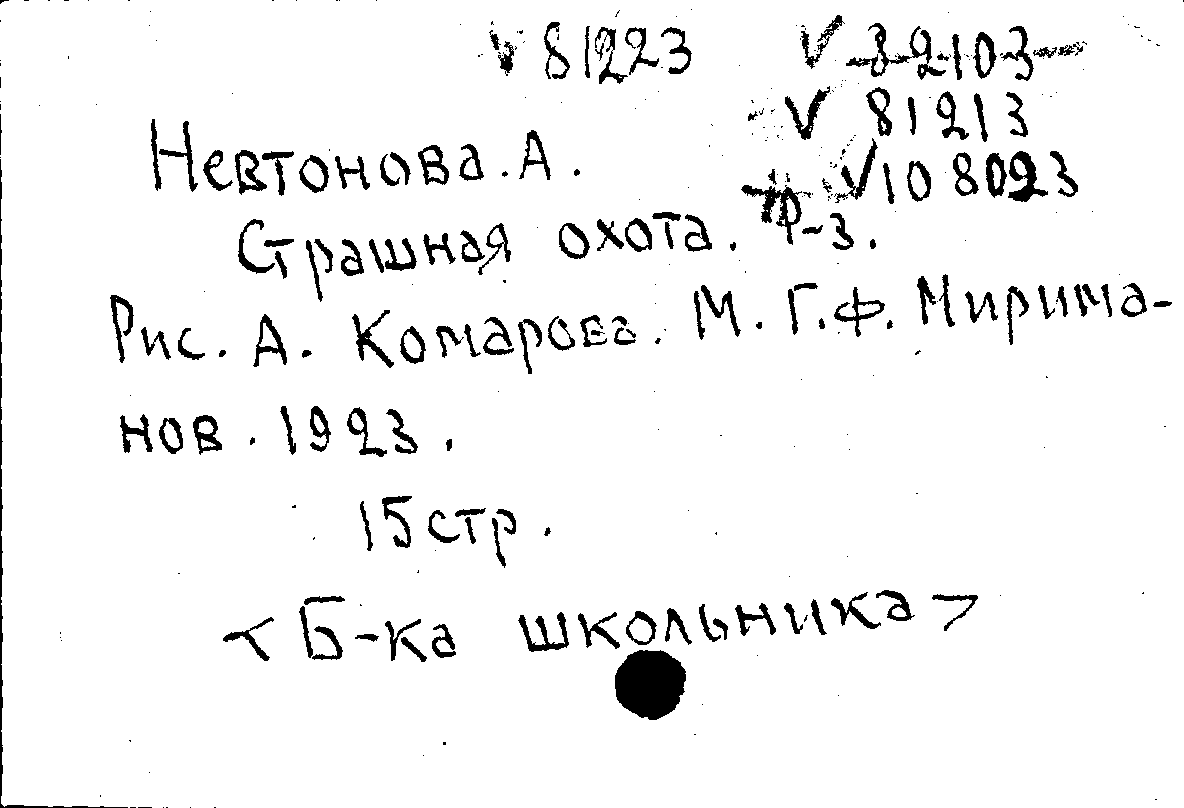 V 81223 V 82103
V 81213
V 108023
Невтонова. А.
Страшная охота. Р-з.
Рис. А. Комарова. М. Г.Ф. Мирима-
нов. 1923.
15 стр.
< Б-ка школьника >